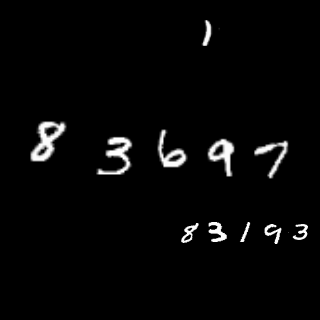 1
83697
83193